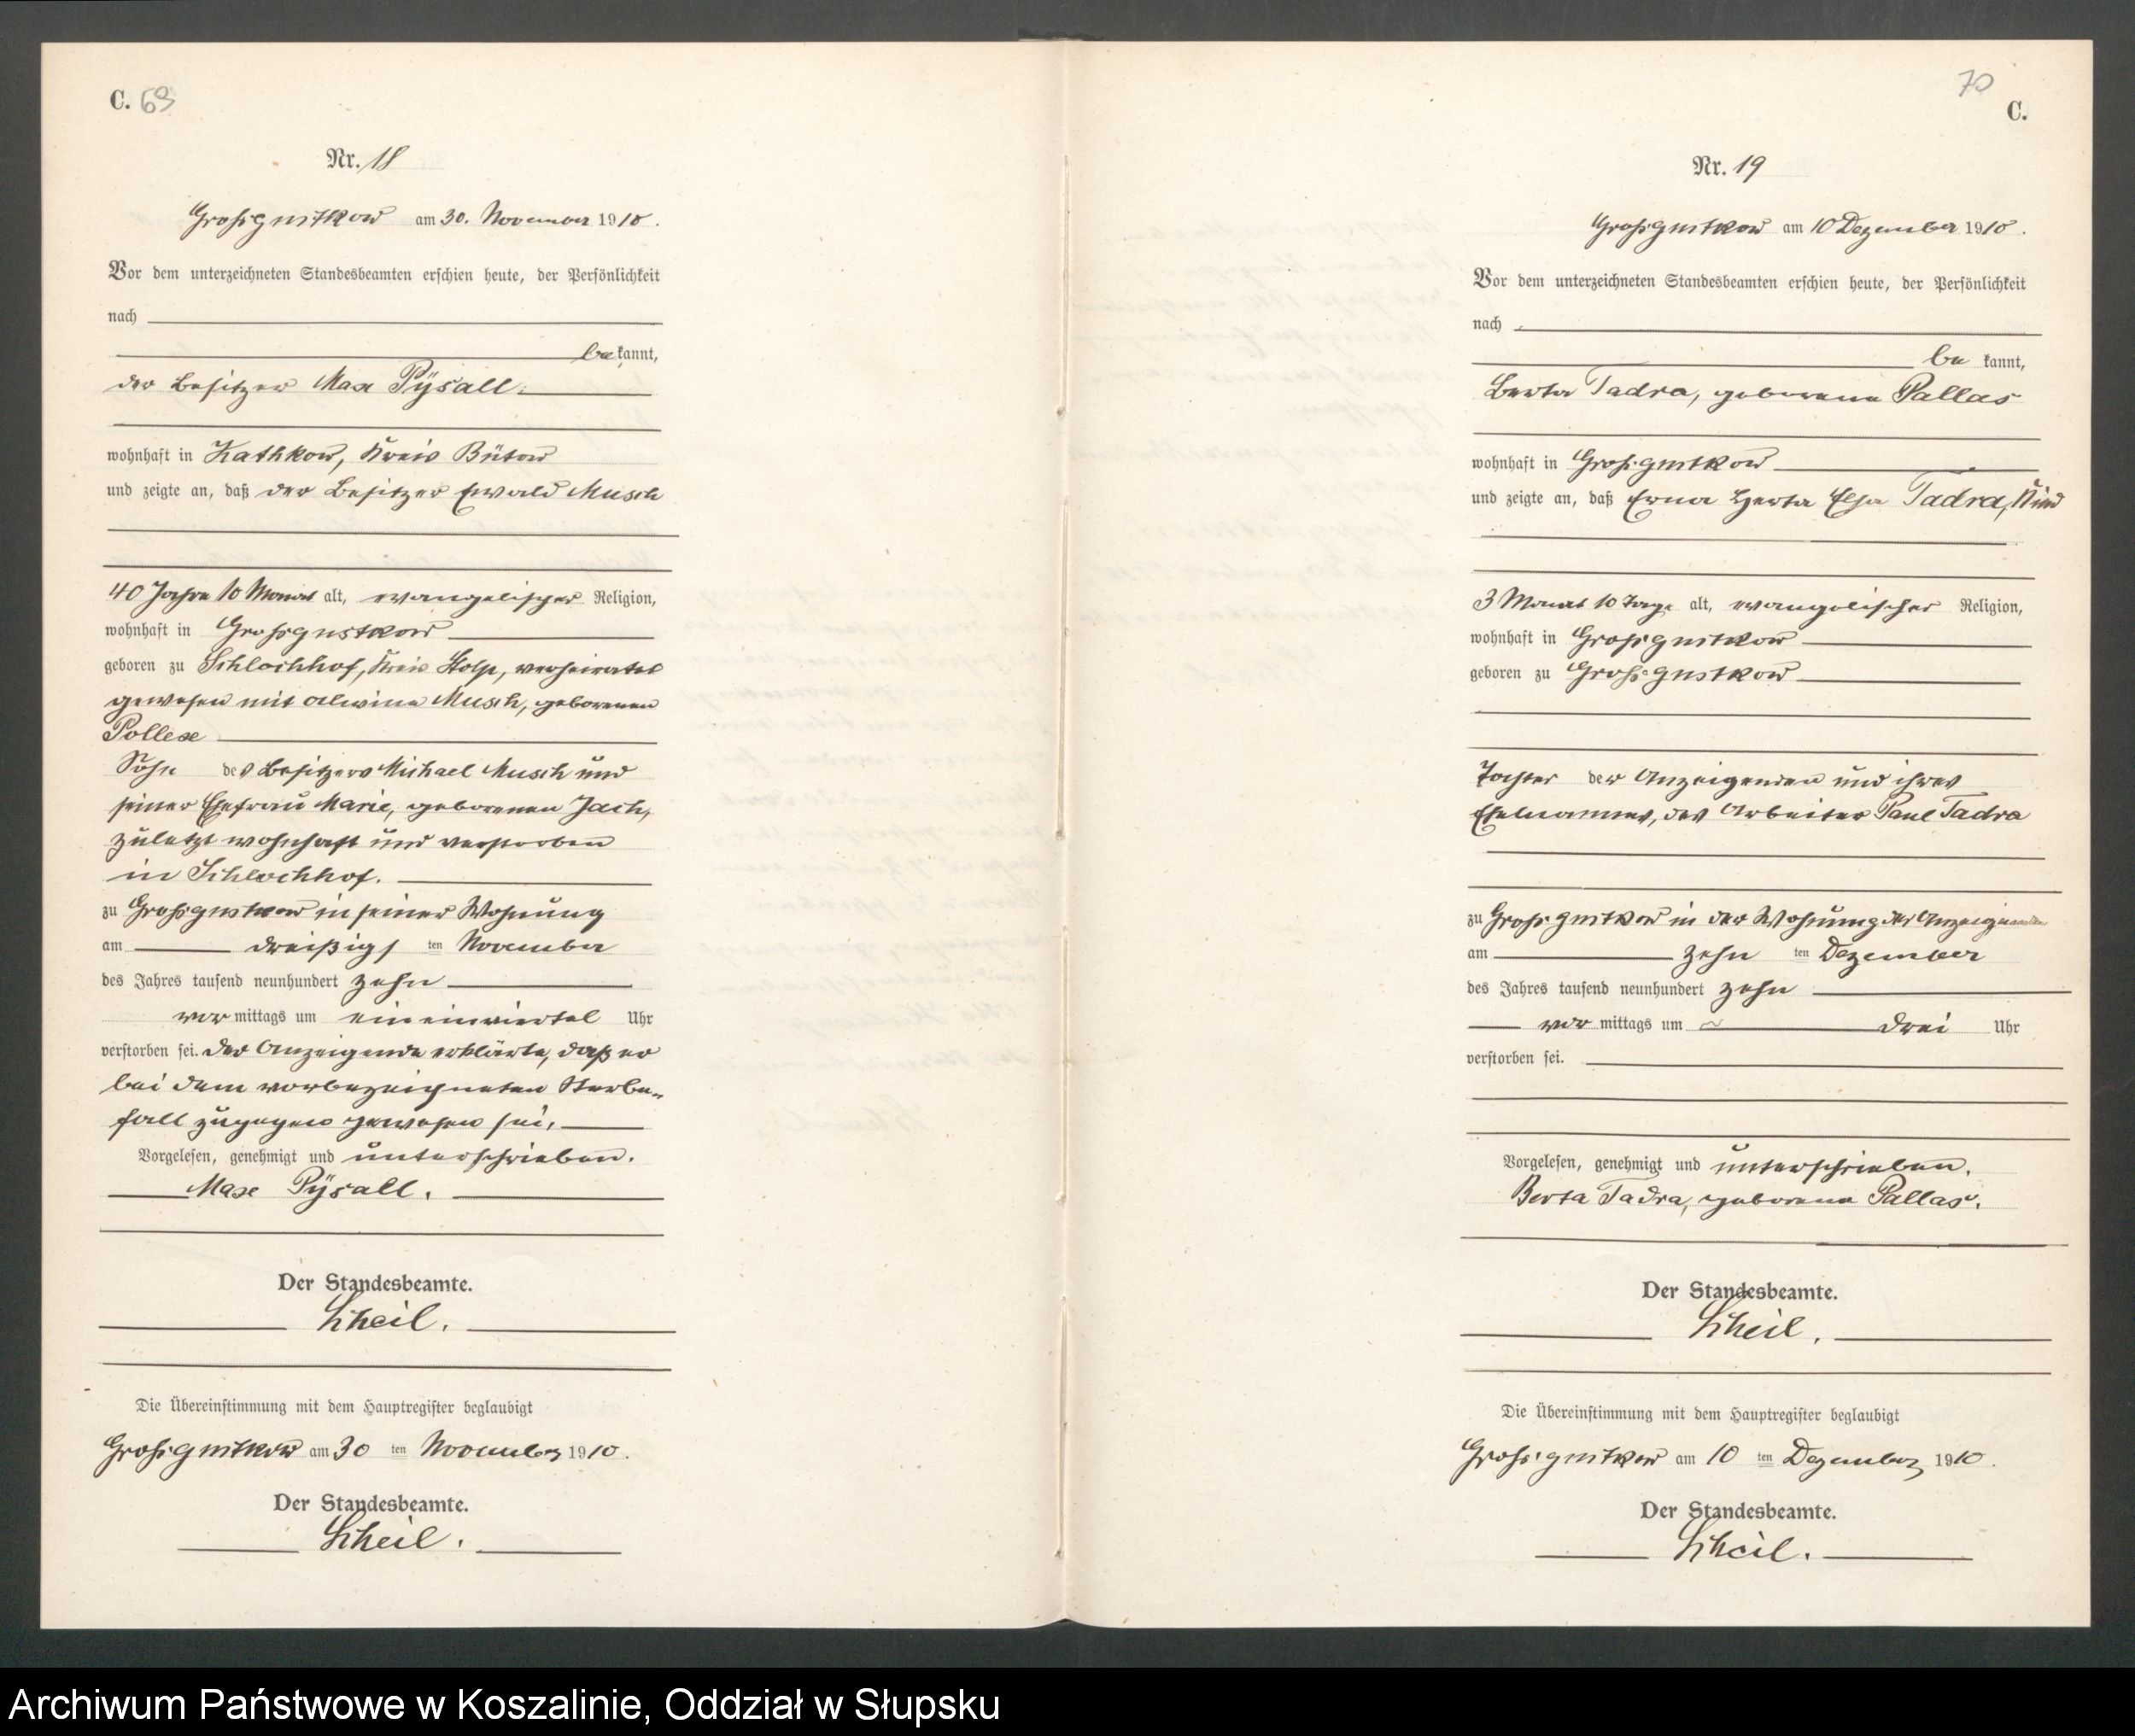 C. 69
Nr. 18
Großgustkow am 30. November 1910.
Vor dem unterzeichneten Standesbeamten erschien heute, der Persönlichkeit
nach
bekannt,
der Besitzer Max Pÿsall.
wohnhaft in Kathkow, Kreis Bütow
und zeigte an, daß der Besitzer Ewald Musch
40 Jahre 10 Monat alt, evangelischer Religion,
wohnhaft in Großgustkow
geboren zu Schlochhof, Kreis Stolp, verheiratet
gewesen mit Alwine Musch, geborenen
Pollex
Sohn des Besitzers Michael Musch und
seiner Ehefrau Marie, geborenen Jach,
zuletzt wohnhaft und verstorben
in Schlochhof.
zu Großgustkow in seiner Wohnung
am dreißigs ten November
des Jahres tausend neunhundert zehn
vor mittags um ein einviertel Uhr
verstorben sei. Der Anzeigende erklärte, daß er
bei dem vorbezeichneten Sterbe-
fall zugegen gewesen sei.
Vorgelesen, genehmigt und unterschrieben.
Max Pÿsall.
Der Standesbeamte.
Scheil.
Die Übereinstimmung mit dem Hauptregister beglaubigt
Großgustkow am 30 ten November 1910.
Der Standesbeamte.
Scheil.
70
C.
Nr. 19
Großgustkow am 10 Dezember 1910.
Vor dem unterzeichneten Standesbeamten erschien heute, der Persönlichkeit
nach
be kannt,
Berta Tadra, geborene Pallas
wohnhaft in Großgustkow
und zeigte an, daß Erna Herta Elsa Tadra, Kind
3 Monat 10 Tage alt, evangelischer Religion,
wohnhaft in Großgustkow
geboren zu Großgustkow
Tochter der Anzeigenden und ihres
Ehemannes, des Arbeiter Paul Tadra
zu Großgustkow in der Wohnung der Anzeigenden
am zehn ten Dezember
des Jahres tausend neunhundert zehn
vor mittags um drei Uhr
verstorben sei.
Vorgelesen, genehmigt und unterschrieben.
Berta Tadra, geborene Pallas.
Der Standesbeamte.
Scheil.
Die Übereinstimmung mit dem Hauptregister beglaubigt
Großgustkow am 10 ten Dezember 1910.
Der Standesbeamte.
Scheil.
Archiwum Państwowe w Koszalinie, Oddział w Słupsku